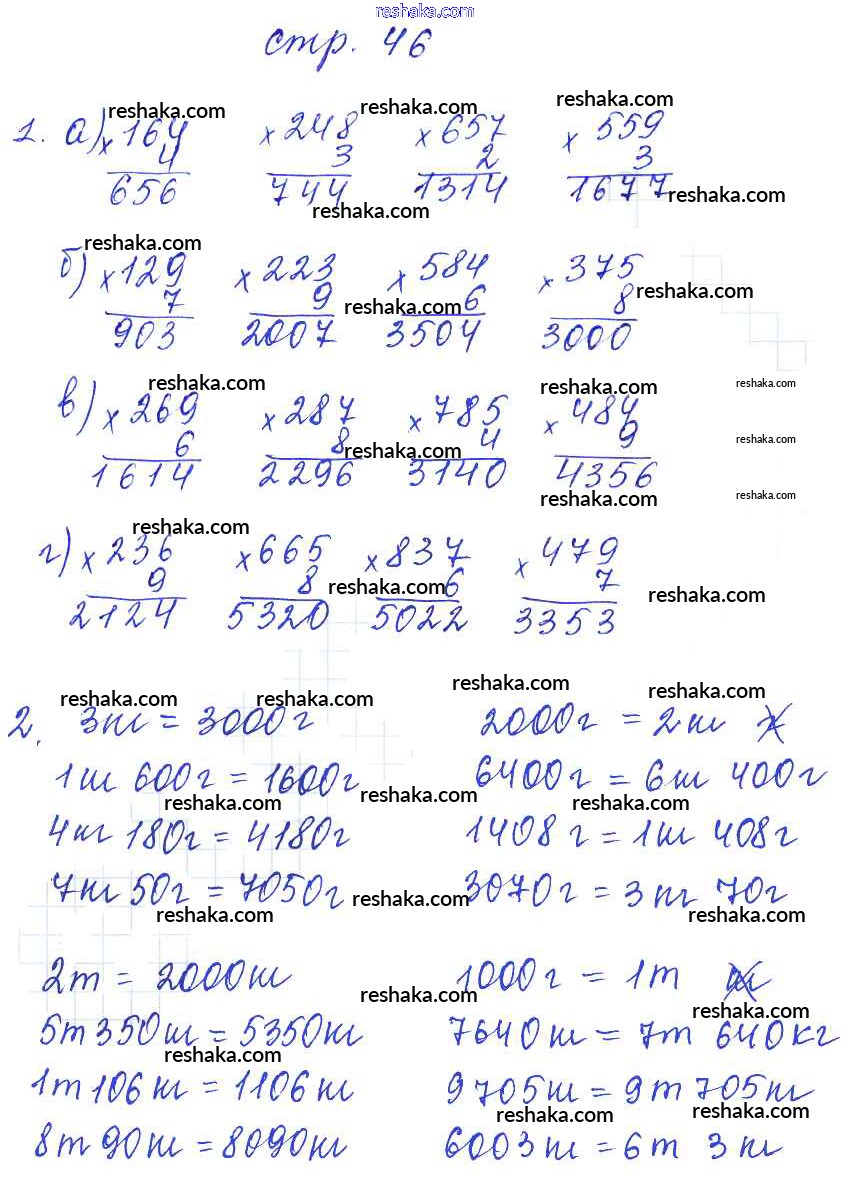 reshaka.com
стр. 46
reshaka.com reshaka.com reshaka.com
1. а) ×164 ×248 ×657 ×559
4 3 2 3
656 744 1314 1677
reshaka.com reshaka.com
reshaka.com
б) ×129 ×223 ×584 ×375
7 9 6 8
reshaka.com reshaka.com
903 2007 3504 3000
reshaka.com reshaka.com reshaka.com
в) ×269 ×287 ×785 ×484
6 8 4 9
reshaka.com reshaka.com
1614 2296 3140 4356
reshaka.com reshaka.com
reshaka.com
г) ×236 ×665 ×837 ×479
9 8 6 7
reshaka.com reshaka.com
2124 5320 5022 3353
reshaka.com reshaka.com reshaka.com reshaka.com
2. 3кг = 3000г 2000г = 2кг
1кг 600г = 1600г 6400г = 6кг 400г
reshaka.com reshaka.com reshaka.com
4кг 180г = 4180г 1408г = 1кг 408г
7кг 50г = 7050г 3070г = 3кг 70г
reshaka.com reshaka.com reshaka.com
2т = 2000кг 1000г = 1т
reshaka.com reshaka.com
5т 350кг = 5350кг 7640кг = 7т 640кг
reshaka.com reshaka.com
1т 106кг = 1106кг 9705кг = 9т 705кг
reshaka.com reshaka.com
8т 90кг = 8090кг 6003кг = 6т 3кг